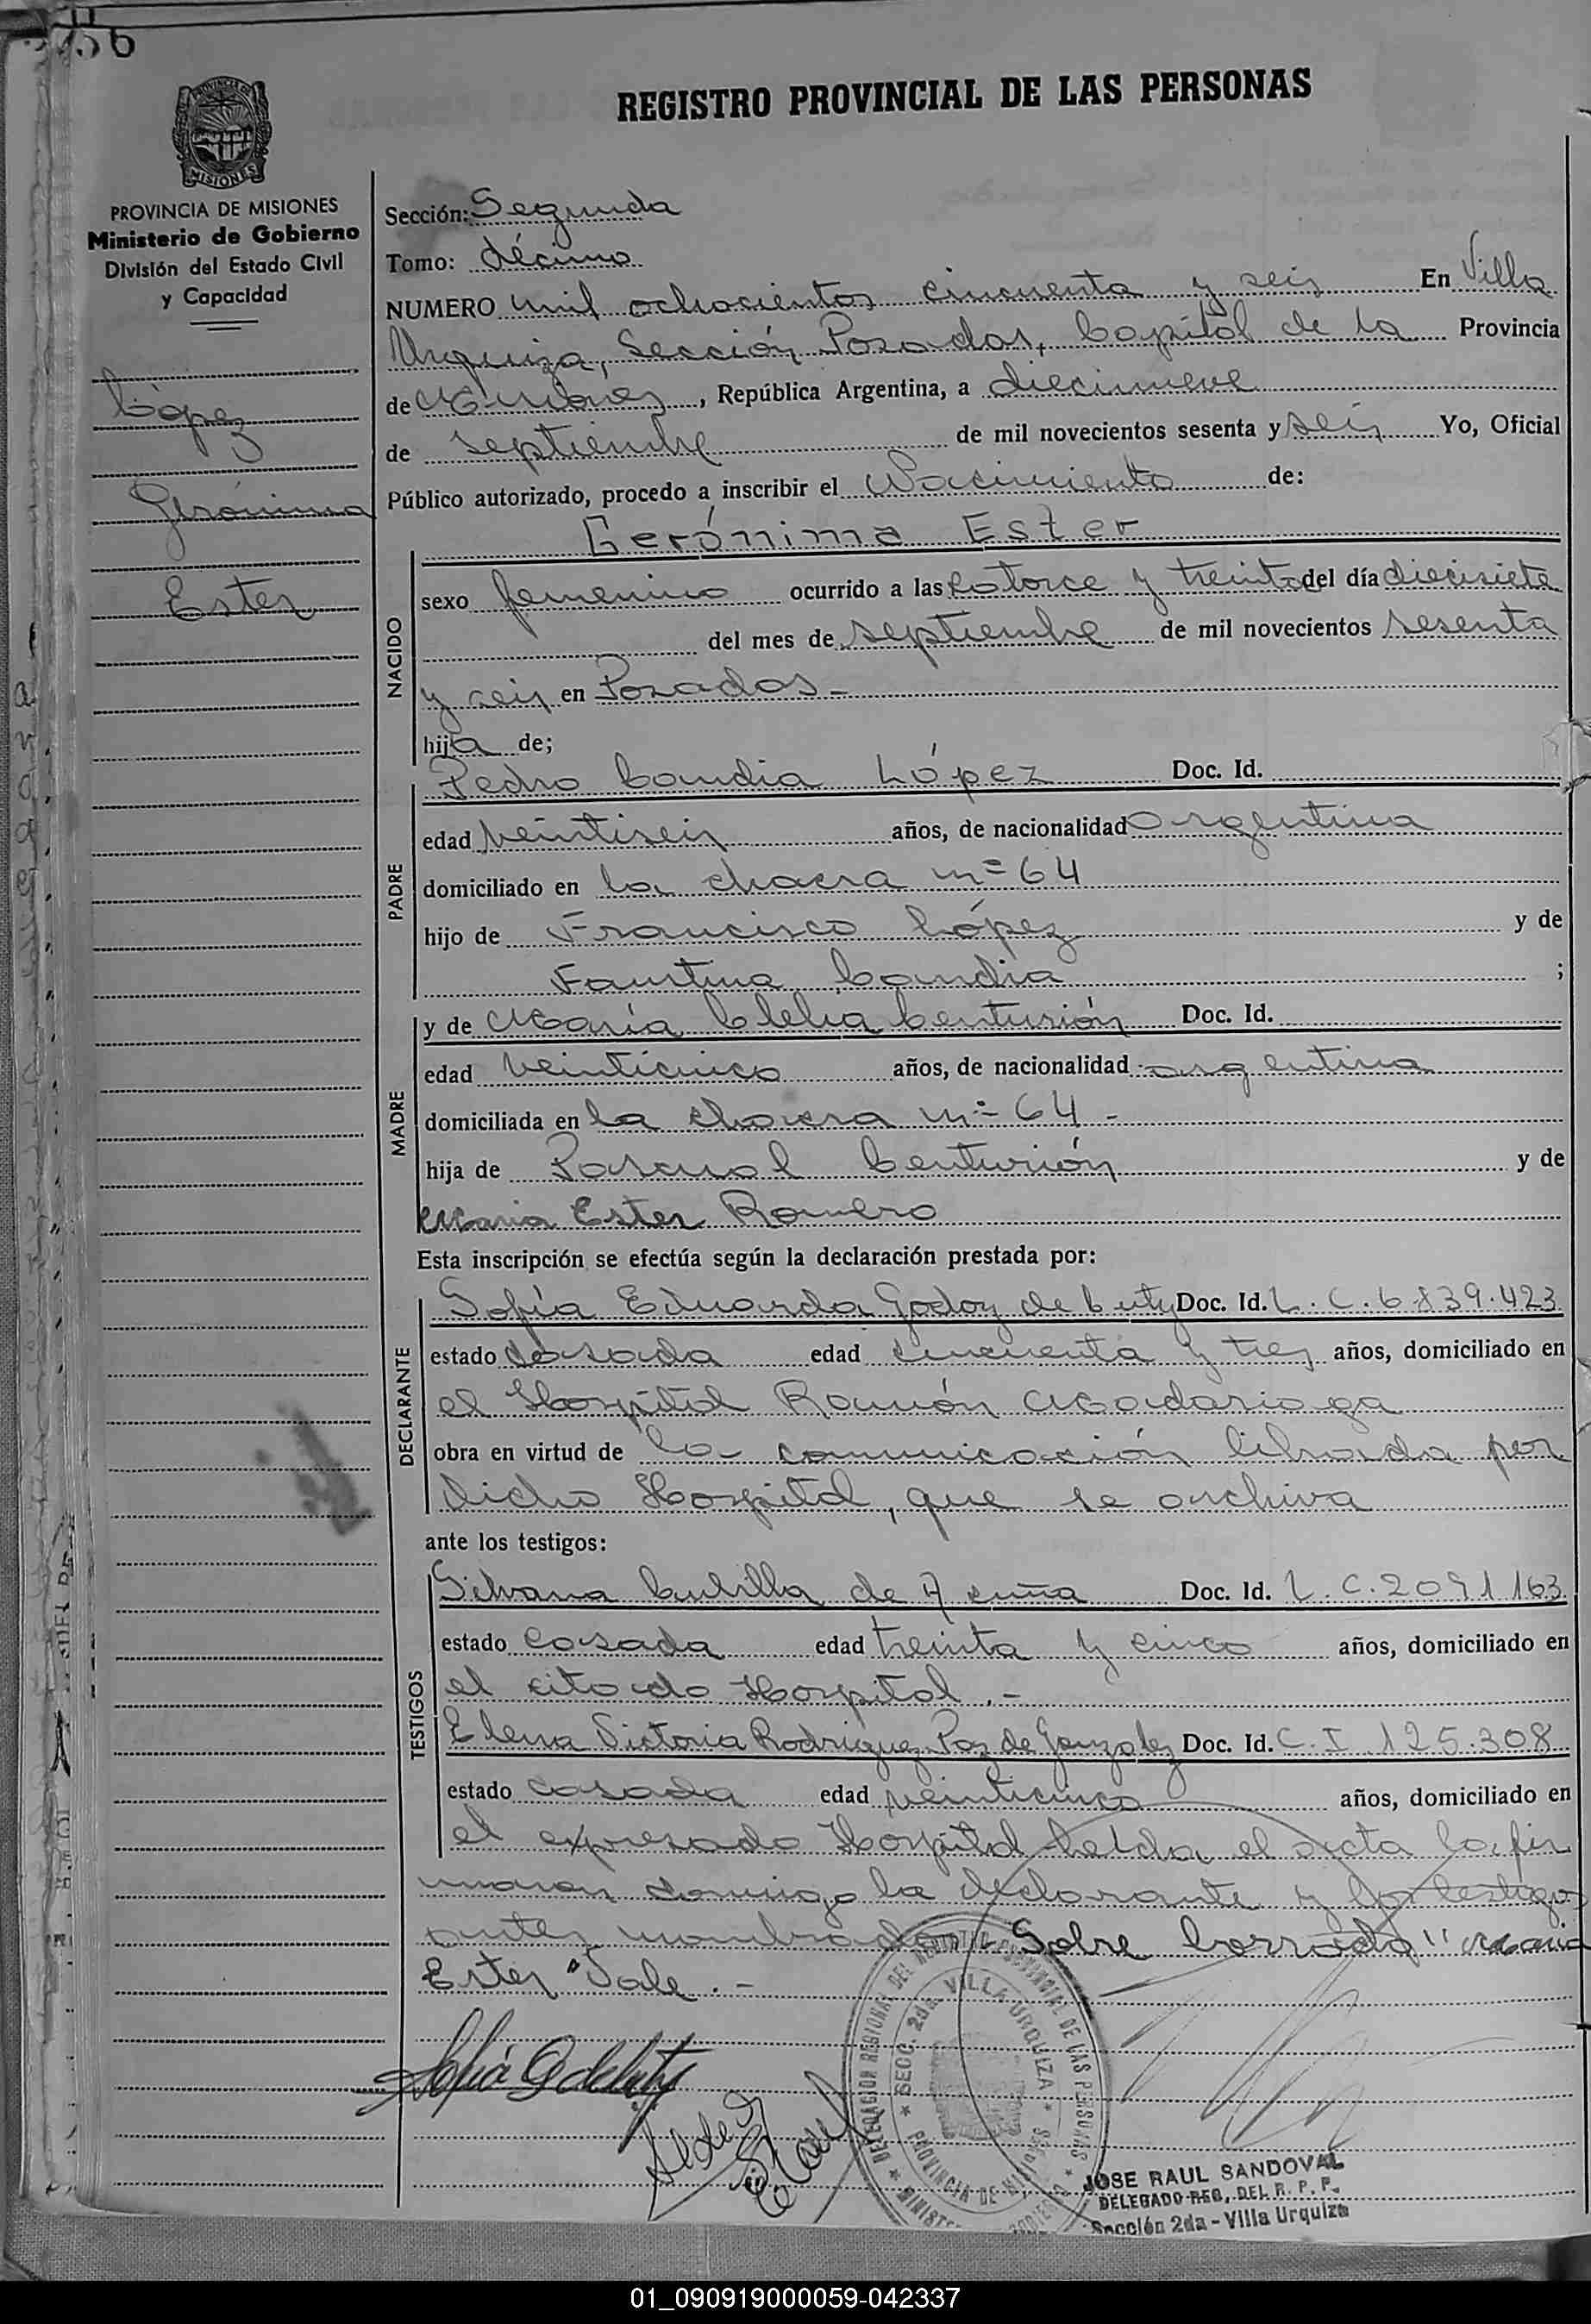 1856
REGISTRO PROVINCIAL DE LAS PERSONAS
MISIONES
PROVINCIA DE MISIONES
Ministerio de Gobierno
División del Estado Civil
y Capacidad
López
Gerónima
Ester
Sección: Segunda
Tomo: décimo
NUMERO mil ochocientos cincuenta y seis En Villa
Urquiza, Sección Posadas, Capital de la Provincia
de Misiones, República Argentina, a diecinueve
de septiembre de mil novecientos sesenta y seis Yo, Oficial
Público autorizado, procedo a inscribir el Nacimiento de:
Gerónima Ester
NACIDO
sexo femenino ocurrido a las catorce y treinta del día diecisiete
del mes de septiembre de mil novecientos sesenta
y seis en Posados -
hija de;
PADRE
Pedro Candia López Doc. Id.
edad veintiseis años, de nacionalidad Argentina
domiciliado en la chacra nº 64
hijo de Francisco López y de
Faustina Candia ;
MADRE
y de María Clelia Centurión Doc. Id.
edad veinticinco años, de nacionalidad argentina
domiciliada en la chacra nº 64 -
hija de Pascual Centurión y de
Maria Ester Romero
Esta inscripción se efectúa según la declaración prestada por:
DECLARANTE
Sofía Eduarda Godoy de Doc. Id. L. C. 6.839.423
estado casada edad cincuenta y tres años, domiciliado en
el Hospital Ramón Madariaga
obra en virtud de la comunicación librada por
dicho Hospital, que se archiva
ante los testigos:
TESTIGOS
Silvana Cubilla de Acuña Doc. Id. L. C. 2091163
estado casada edad treinta y cinco años, domiciliado en
el citado Hospital .-
Elena Victoria Rodriguez Paz de Gonzalez Doc. Id. C. I. 125.308
estado casada edad veinticinco años, domiciliado en
el expresado Hospital leida el acta la fir
maron conmigo la declarante y los testigos
antes nombrados - Sobre borrado " Maria
Ester " Vale .-
DELEGACION REGIONAL DEL REGISTRO PROVINCIAL DE LAS PERSONAS
SECC. 2da VILLA URQUIZA
PROVINCIA DE MISIONES
JOSE RAUL SANDOVAL
DELEGADO REG. DEL R. P. P.
Sección 2da - Villa Urquiza
01_090919000059-042337